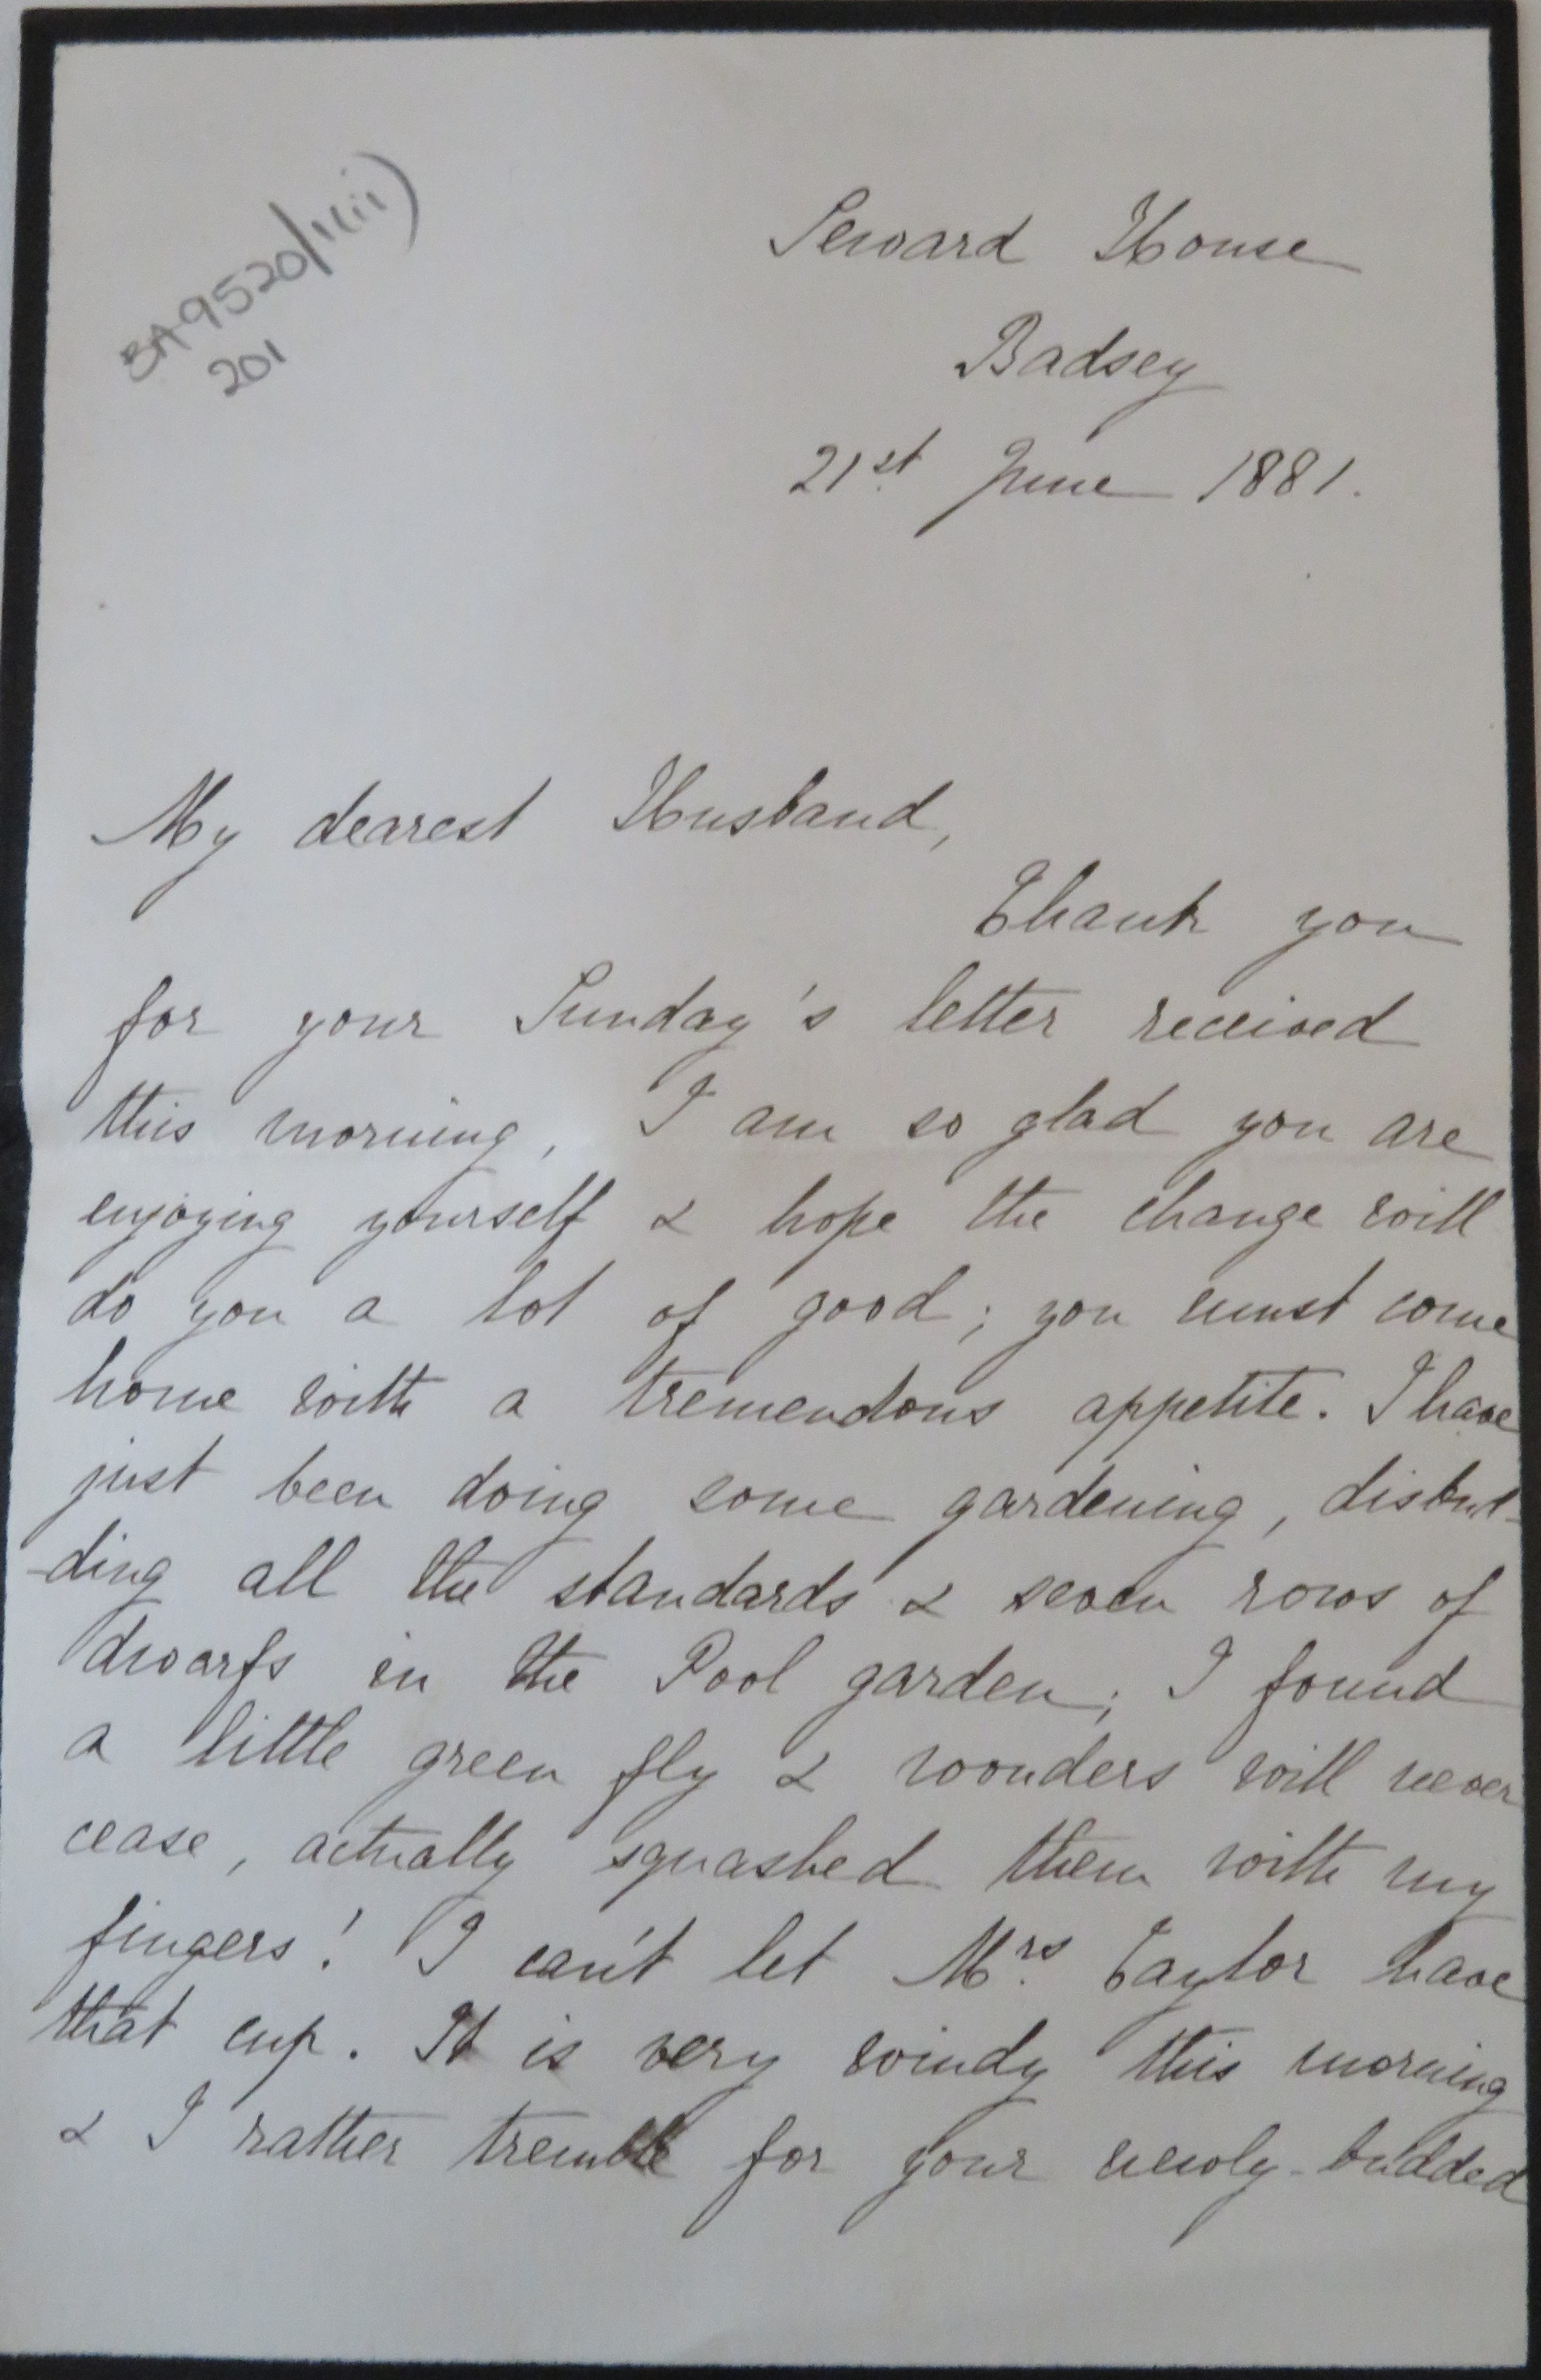 BA9520/1(ii)
201
Seward House
Badsey
21st June 1881.
My dearest Husband,
Thank you
for your Sunday's letter received
this morning, I am so glad you are
enjoying yourself & hope the change will
do you a lot of good; you must come
home with a tremendous appetite. I have
just been doing some gardening, disbud-
-ding all the standards & seven rows of
dwarfs in the Pool garden; I found
a little green fly & wonders will never
cease, actually squashed them with my
fingers! I can't let Mrs. Taylor have
that cup. It is very windy this morning
& I rather tremble for your newly-budded